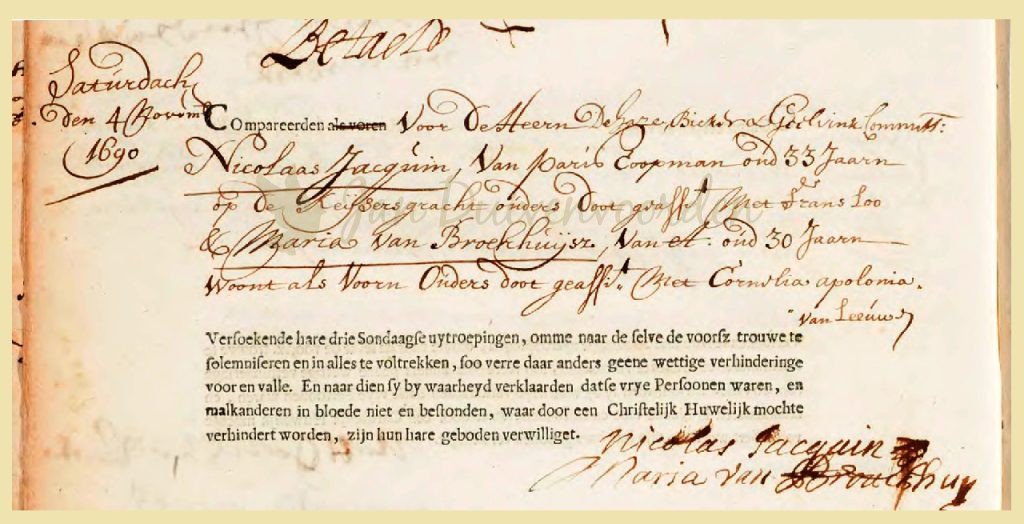 Betaelt
Saturdach
den 4 Novemb
1690
Compareerden als voren Voor De Heern De Haze, Bicker & Geelvink Commiss:
Nicolaas Jacquin, Van Paris Coopman oud 33 Jaarn
op de Keijsersgracht ouders doot geasst Met Frans de Loo
& Maria van Broekhuijsz, Van A: oud 30 Jaarn
Woont als Voorn Ouders doot geasst Met Cornelia apolonia
van Leeuw
Versoekende hare drie Sondaagse uytroepingen, omme naar de selve de voorsz trouwe te
solemniseren en in alles te voltrekken, soo verre daar anders geene wettige verhinderinge
voor en valle. En naar dien sy by waarheyd verklaarden datse vrye Persoonen waren, en
malkanderen in bloede niet en bestonden, waar door een Christelijk Huwelijk mochte
verhindert worden, zijn hun hare geboden verwilliget.
Nicolas Jacquin
Maria van Brouckhuy